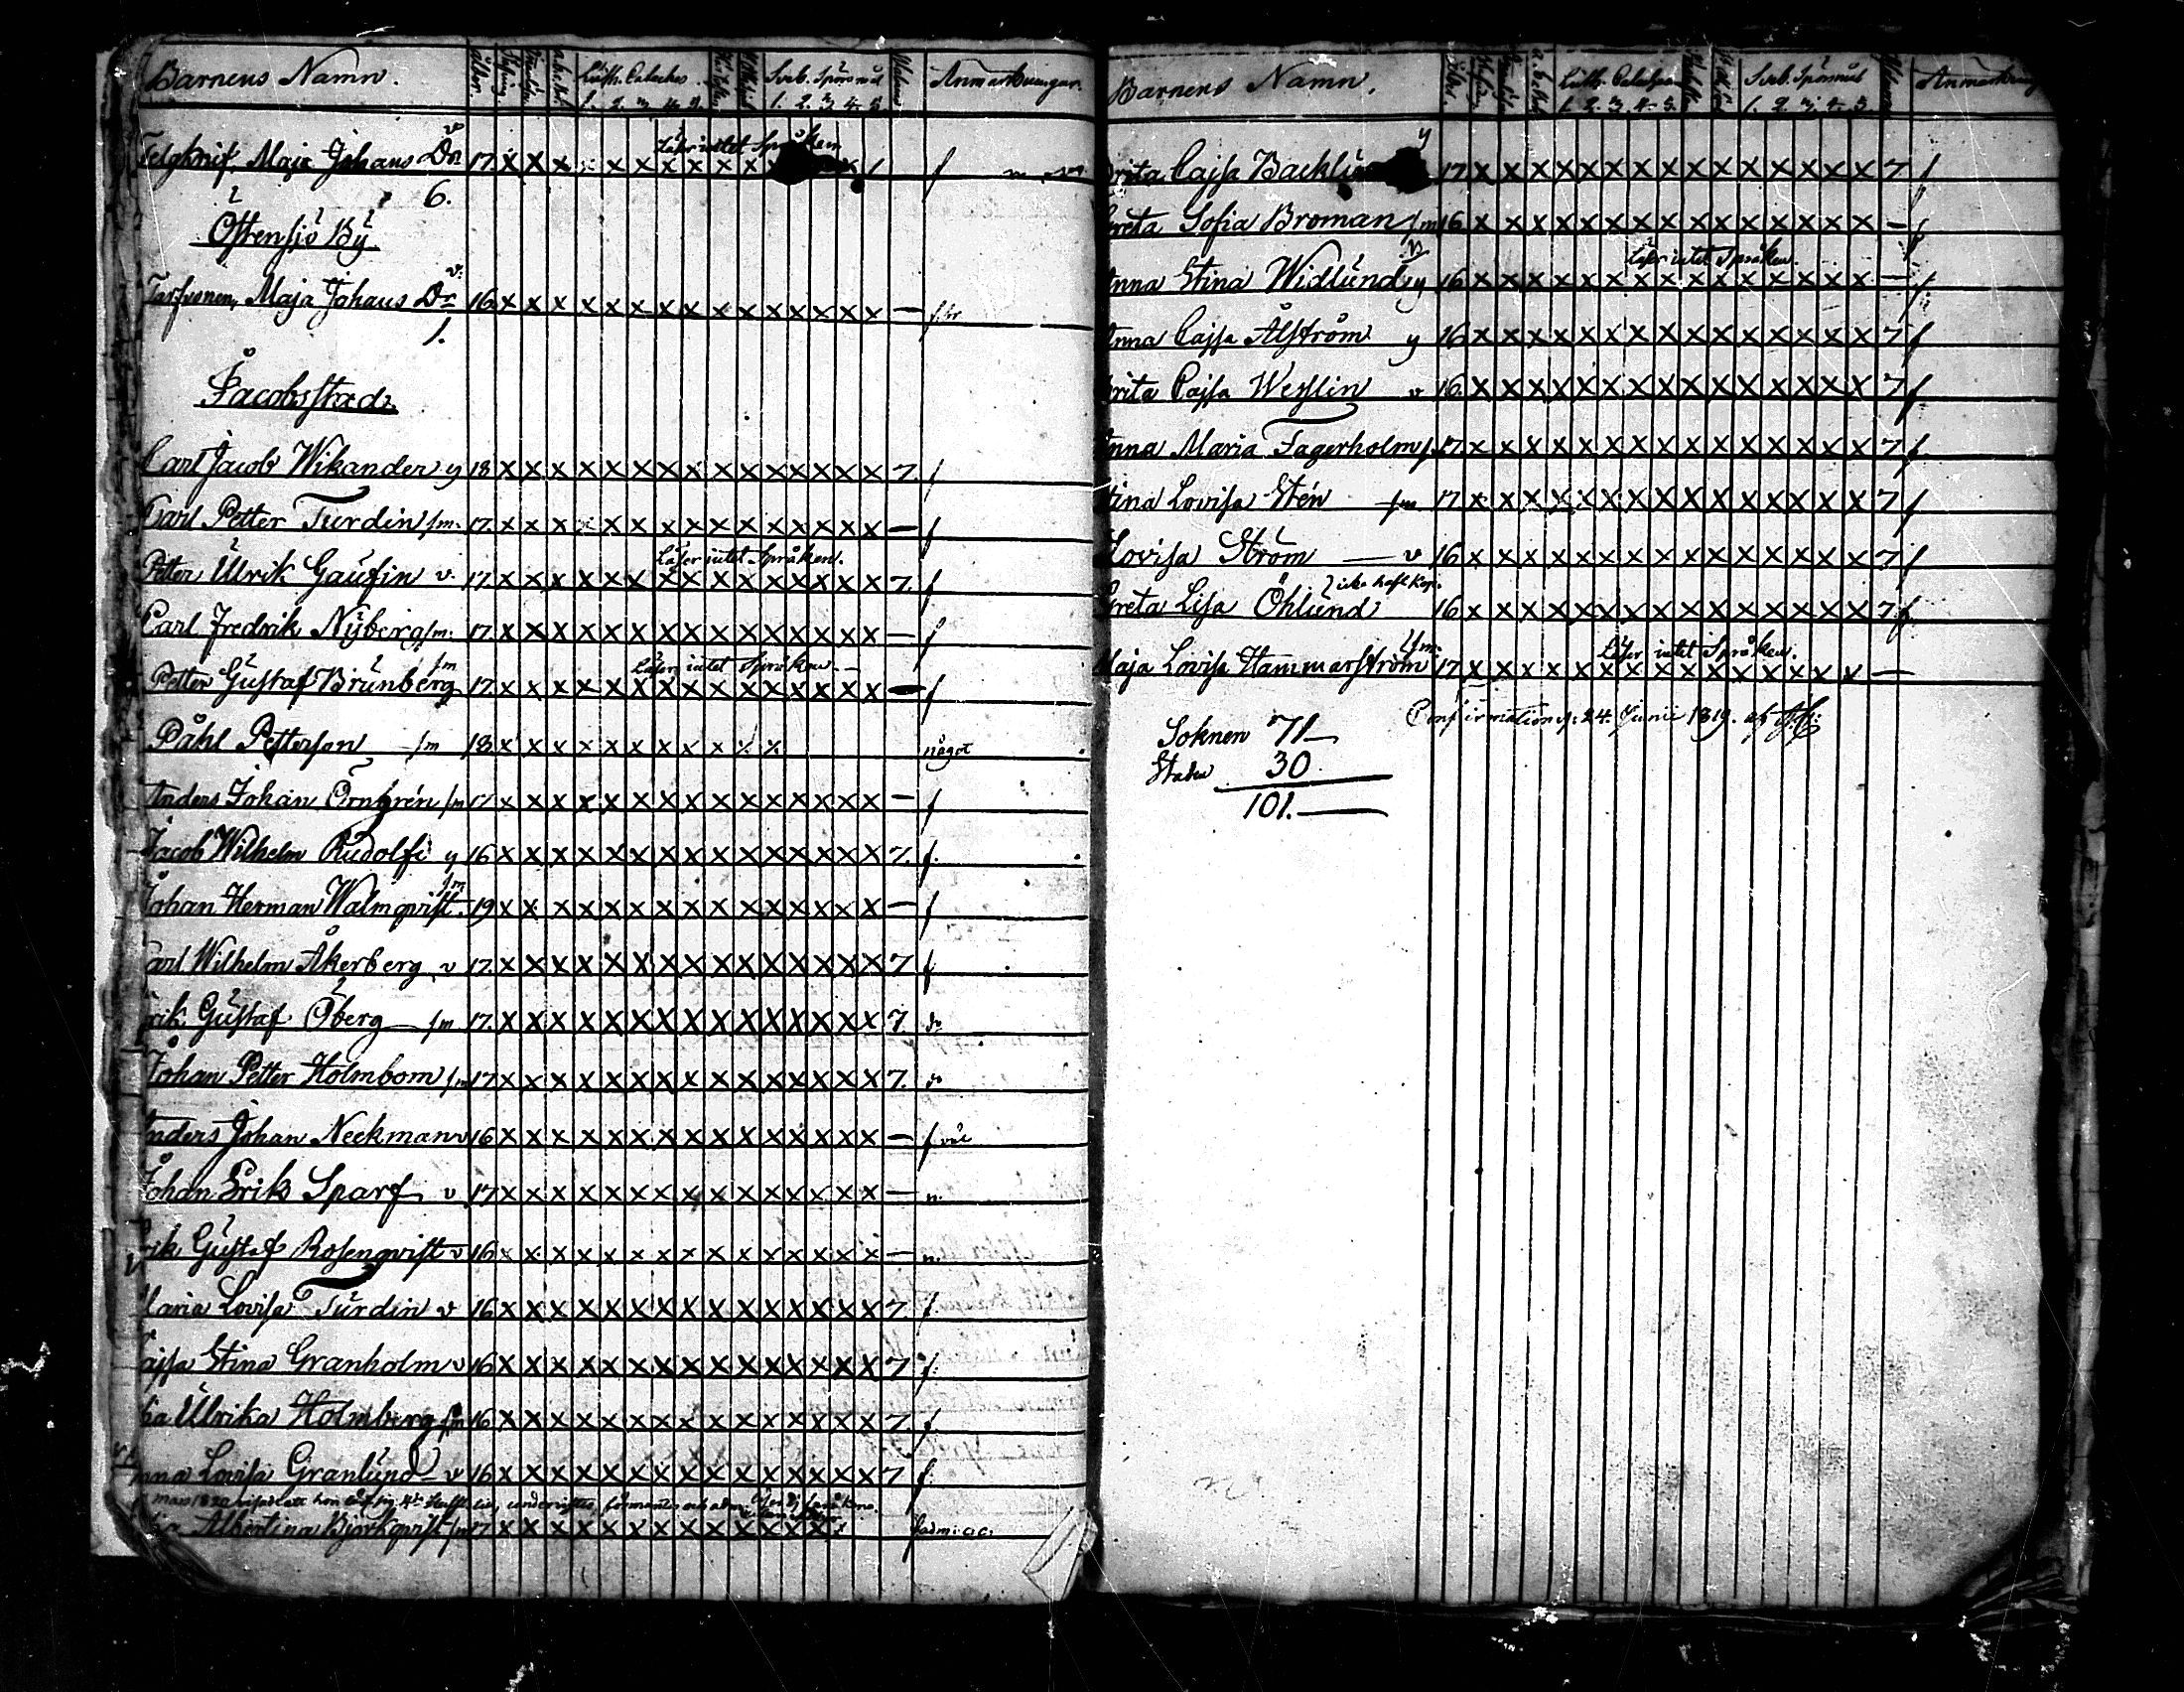 Barnens Namn. ålder. Luth. Cateches. Sveb. Spörsmål Anmärkningar.
1. 2. 3. 4. 5. 1. 2. 3. 4. 5
Maja Johans Dr v 17 x x x x x x x x x x Läser intet Språken f
6.
Östensjö By
Maja Johans Dr v. 16 x x x x x x x x x x x x x x x —
1.
Jacobsstad.
Carl Jacob Wikander y 18 x x x x x x x x x x x x x x x 7. f
Carl Petter Turdin fm. 17. x x x x x x x x x x x x x x x — f
Petter Ulrik Gaufin v. 17. x x x x x x x x x x x x x x x 7. Läser intet Språken. f
Carl Fredrik Nyberg fm. 17. x x x x x x x x x x x x x x x — f
Petter Gustaf Brunberg fm 17. x x x x x x x x x x x x x x x — Läser intet Språken. — f
Påhl Petterson fm 18. x x x x x x x x x x x något
Anders Johan Örngrén fm 17 x x x x x x x x x x x x x x x — f
Jacob Wilhelm Rudolfi y 16 x x x x x x x x x x x x x x x 7. f.
Johan Herman Walmqvist. fm 19 x x x x x x x x x x x x x x x — f
Carl Wilhelm Åkerberg v 17. x x x x x x x x x x x x x x x 7 f
Erik Gustaf Öberg — fm 17. x x x x x x x x x x x x x x x 7 do
Johan Petter Holmbom fm 17 x x x x x x x x x x x x x x x 7. do
Anders Johan Neckman v 16 x x x x x x x x x x x x x x x — f
Johan Erik Sparf v 17 x x x x x x x x x x x x x x x — n.
Erik Gustaf Rosenqvist v 16 x x x x x x x x x x x x x x x — n.
Maria Lovisa Turdin v 16 x x x x x x x x x x x x x x x 7. f
Cajsa Stina Granholm v 16 x x x x x x x x x x x x x x x 7 f.
Ulrika Holmberg fm 16 x x x x x x x x x x x x x x x 7. f
Anna Lovisa Granlund v 16 x x x x x x x x x x x x x x x 7 f
1820
Albertina Björkqvist fm 17 x x x x x x x x x x x x x x
Barnens Namn. ålder. Luth. Cateches Sveb. Spörsmål Anmärkning
1. 2. 3. 4. 5. 1. 2. 3. 4. 5
Brita Cajsa Backlund y 17 x x x x x x x x x x x x x x x 7 f
Greta Sofia Broman fm 16 x x x x x x x x x x x x x x x — f
Anna Stina Widlund y 16 x x x x x x x x x x x x x x x — Läser intet Språken. f
Anna Cajsa Ålström y 16 x x x x x x x x x x x x x x x 7 f
Brita Cajsa Weslin v 16. x x x x x x x x x x x x x x x 7 f
Anna Maria Fagerholm f 17. x x x x x x x x x x x x x x x 7 f
Stina Lovisa Stén fm 17 x x x x x x x x x x x x x x x 7 f
Lovisa Ström — v 16 x x x x x x x x x x x x x x x 7 f
Greta Lisa Öhlund icke haft Kop. 16 x x x x x x x x x x x x x x x 7. f
Maja Lovisa Hammarström 17 x x x x x x x x x x x x x x x — Läser intet Språken.
Confirmation d. 24. Junii 1819. af
Soknen 71 —
Staden 30
101. —